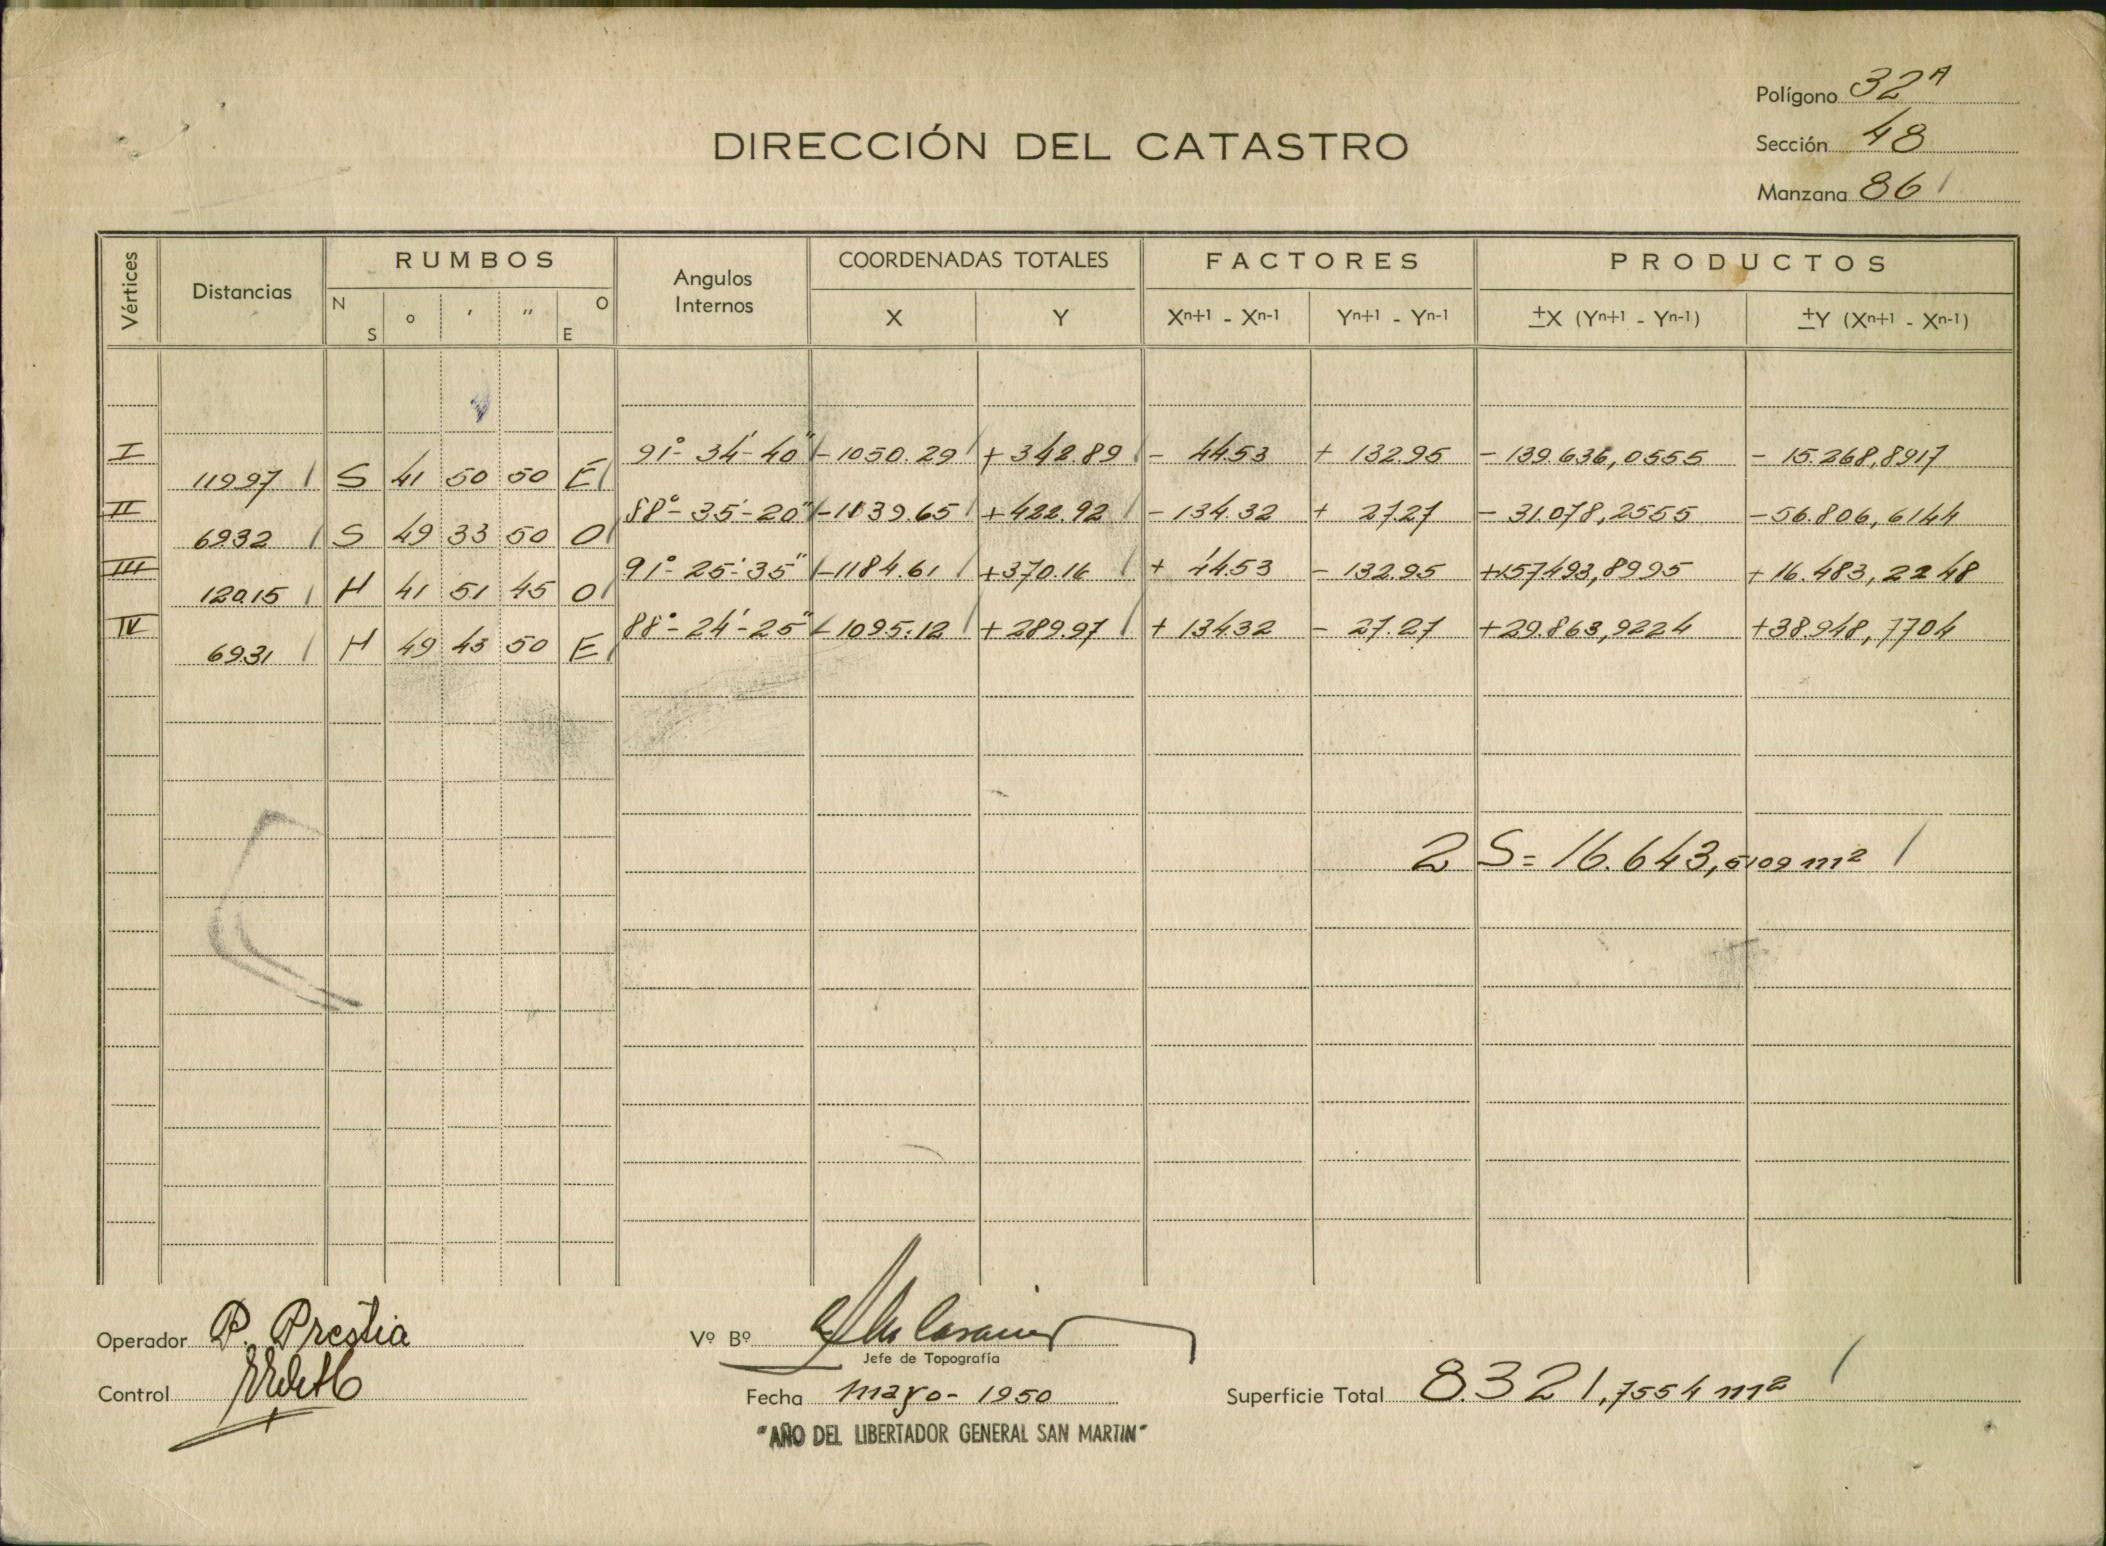 Polígono 32A
DIRECCIÓN DEL CATASTRO
Sección 48
Manzana 86
Vértices Distancias RUMBOS Angulos Internos COORDENADAS TOTALES FACTORES PRODUCTOS
N S ° ' " O E X Y Xn+1 - Xn-1 Yn+1 - Yn-1 ±X (Yn+1 - Yn-1) ±Y (Xn+1 - Xn-1)
I 91°-34'-40" -1050.29 +342.89 - 44.53 + 132.95 -139.636,0555 - 15.268,8917
119.97 S 41 50 50 E
II 88°-35'-20" -1139.65 +422.92 -134.32 + 27.27 - 31.078,2555 -56.806,6144
69.32 S 49 33 50 O
III 91°-25'-35" -1184.61 +370.16 + 44.53 - 132.95 +157493,8995 + 16.483,2248
120.15 N 41 51 45 O
IV 88°-24'-25" -1095.12 +289.97 + 134.32 - 27.27 +29.863,9224 +38.948,7704
69.31 N 49 43 50 E
2 S = 16.643,5109 m²
Operador P. Prestia
Vº Bº
Jefe de Topografía
Control
Fecha mayo - 1950
Superficie Total 8.321,7554 m²
"AÑO DEL LIBERTADOR GENERAL SAN MARTIN"